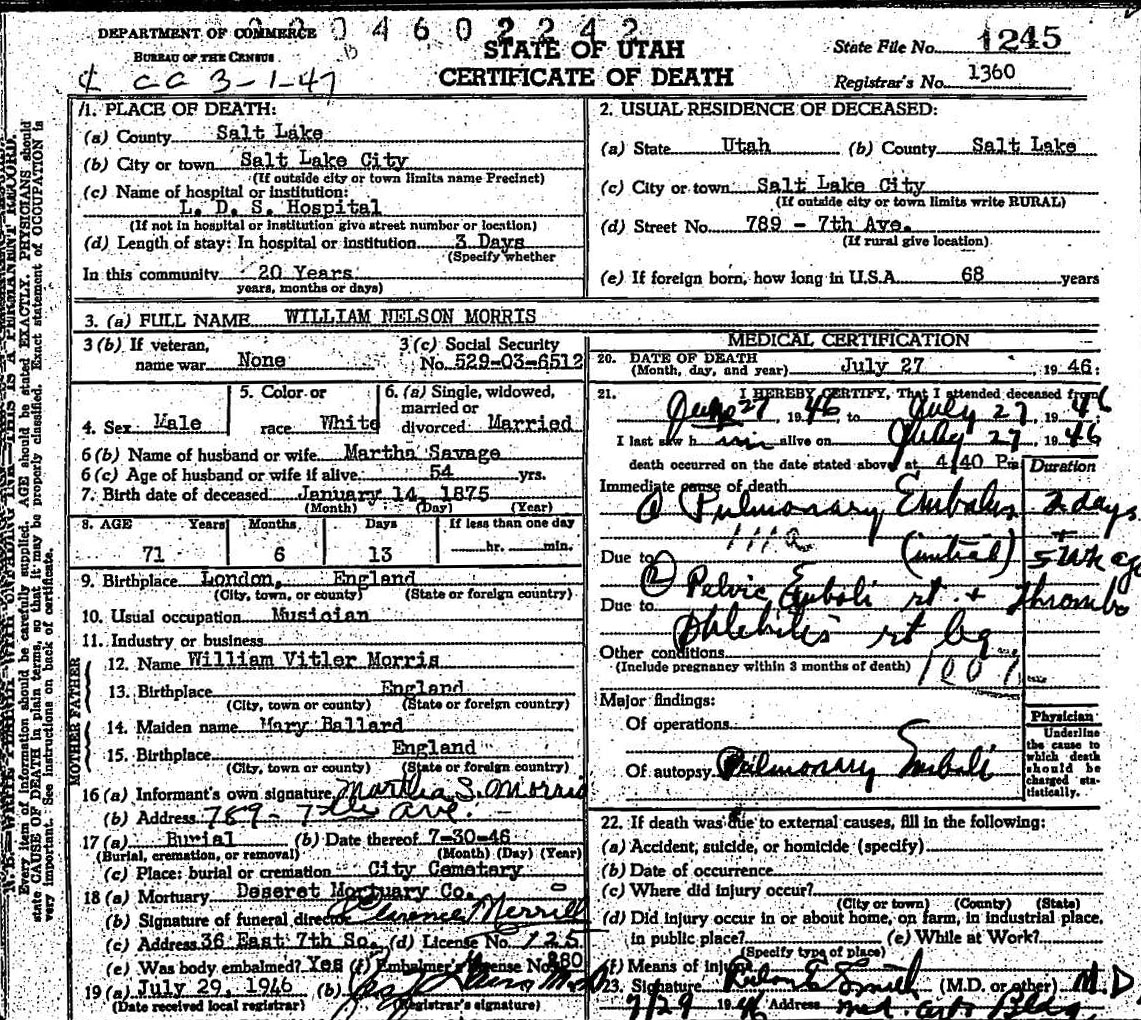 DEPARTMENT OF COMMERCE
BUREAU OF THE CENSUS
0 2 0 4 6 0 2 2 4 2
¢ CC 3-1-47
B
STATE OF UTAH
CERTIFICATE OF DEATH
State File No. 1245
Registrar's No. 1360
1. PLACE OF DEATH:
(a) County Salt Lake
(b) City or town Salt Lake City
(If outside city or town limits name Precinct)
(c) Name of hospital or institution:
L. D. S. Hospital
(If not in hospital or institution give street number or location)
(d) Length of stay: In hospital or institution 3 Days
(Specify whether
In this community 20 Years
years, months or days)
2. USUAL RESIDENCE OF DECEASED:
(a) State Utah (b) County Salt Lake
(c) City or town Salt Lake City
(If outside city or town limits write RURAL)
(d) Street No. 789 - 7th Ave.
(If rural give location)
(e) If foreign born, how long in U.S.A. 68 years
3. (a) FULL NAME WILLIAM NELSON MORRIS
3 (b) If veteran,
name war None
3 (c) Social Security
No. 529-03-6512
4. Sex Male
5. Color or
race White
6. (a) Single, widowed,
married or
divorced Married
6 (b) Name of husband or wife Martha Savage
6 (c) Age of husband or wife if alive 54 yrs.
7. Birth date of deceased January 14, 1875
(Month) (Day) (Year)
8. AGE Years Months Days If less than one day
71 6 13 hr. min.
9. Birthplace London, England
(City, town, or county) (State or foreign country)
10. Usual occupation Musician
11. Industry or business
FATHER
12. Name William Vitler Morris
13. Birthplace England
(City, town or county) (State or foreign country)
MOTHER
14. Maiden name Mary Ballard
15. Birthplace England
(City, town or county) (State or foreign country)
16 (a) Informant's own signature Martha S. Morris
(b) Address 789 - 7th Ave.
17 (a) Burial (b) Date thereof 7-30-46
(Burial, cremation, or removal) (Month) (Day) (Year)
(c) Place: burial or cremation City Cemetary
18 (a) Mortuary Deseret Mortuary Co.
(b) Signature of funeral director Clarence Merrill
(c) Address 36 East 7th So. (d) License No. 125
(e) Was body embalmed? Yes (f) Embalmer's License No. 280
19 (a) July 29, 1946 (b)
(Date received local registrar) (Registrar's signature)
MEDICAL CERTIFICATION
20. DATE OF DEATH
(Month, day, and year) July 27 1946:
21. I HEREBY CERTIFY, That I attended deceased from
June 27 1946 to July 27, 1946
I last saw him alive on July 27, 1946
death occurred on the date stated above at 4/40 Pm
Duration
Immediate cause of death
① Pulmonary Embolus 2 days
111a +
Due to (initial) 5 wk ago
② Pelvic Emboli rt. + Thrombo
Due to
phlebitis rt leg
Other conditions
(Include pregnancy within 3 months of death) 1001
Major findings:
Of operations
Of autopsy Pulmonary Emboli
Physician
Underline
the cause to
which death
should be
charged sta-
tistically.
22. If death was due to external causes, fill in the following:
(a) Accident, suicide, or homicide (specify)
(b) Date of occurrence
(c) Where did injury occur?
(City or town) (County) (State)
(d) Did injury occur in or about home, on farm, in industrial place,
in public place? (e) While at Work?
(Specify type of place)
(f) Means of injury
23. Signature Smith (M.D. or other) M.D
7/29 1946 Address Med. Arts Bldg.
N. B.—WRITE PLAINLY WITH UNFADING INK—THIS IS A PERMANENT RECORD.
Every item of information should be carefully supplied. AGE should be stated EXACTLY. PHYSICIANS should
state CAUSE OF DEATH in plain terms, so that it may be properly classified. Exact statement of OCCUPATION is
very important. See instructions on back of certificate.